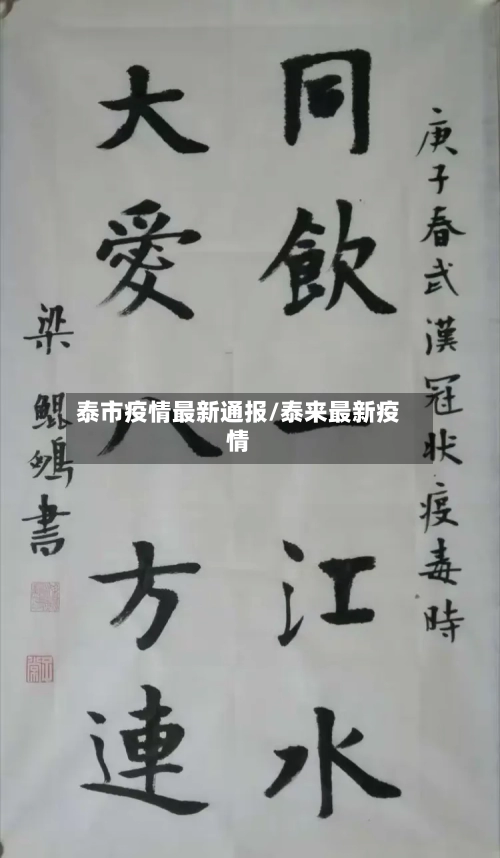 庚子春武漢冠状疫毒時
同飲一江水
大愛八方連
梁鯤書
泰市疫情最新通报/泰来最新疫
情